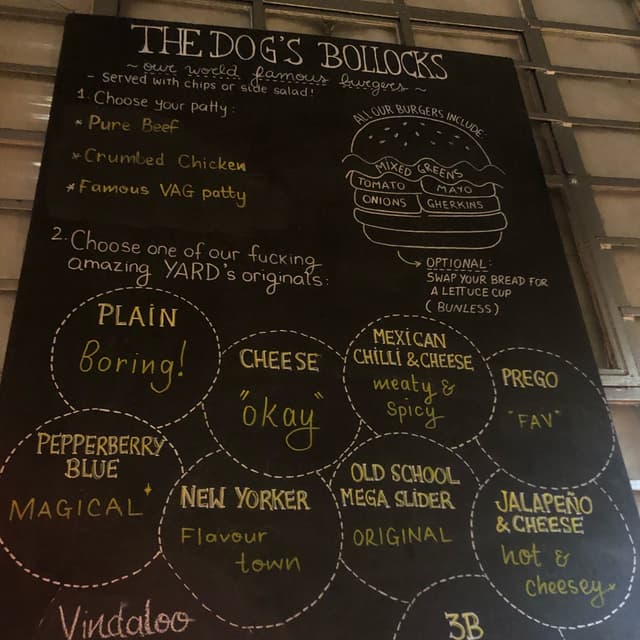 THE DOG'S BOLLOCKS
~ our world famous burgers ~
- served with chips or side salad!
1. Choose your patty:
* Pure Beef
* Crumbed Chicken
* Famous VAG patty
ALL OUR BURGERS INCLUDE:
MIXED GREENS
TOMATO MAYO
ONIONS GHERKINS
OPTIONAL:
SWAP YOUR BREAD FOR
A LETTUCE CUP
(BUNLESS)
2. Choose one of our fucking
amazing YARD's originals:
PLAIN
Boring!
CHEESE
"okay"
MEXICAN
CHILLI & CHEESE
meaty &
spicy
PREGO
"FAV"
PEPPERBERRY
BLUE
MAGICAL
NEW YORKER
Flavour
town
OLD SCHOOL
MEGA SLIDER
ORIGINAL
JALAPEÑO
& CHEESE
hot &
cheesey
Vindaloo
3B